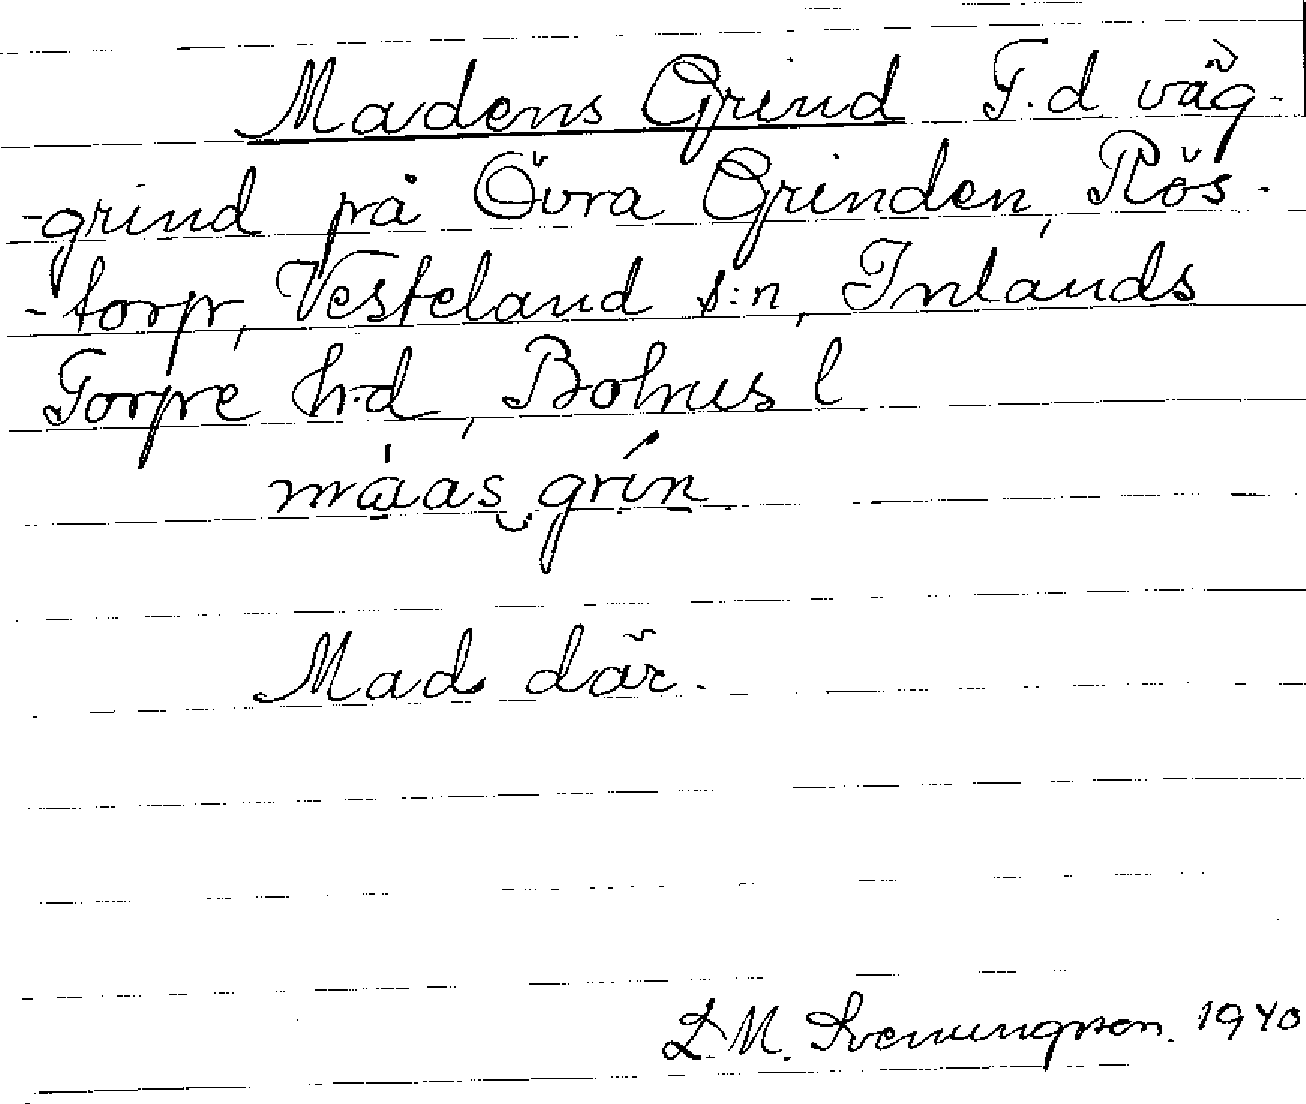 Madens Grind F.d väg-
-grind på Övra Grinden, Rös-
-torp, Vesteland s:n, Inlands
Torpe h:d, Bohus l
måas grín
Mad där.
L. M. Svenungsson. 1940